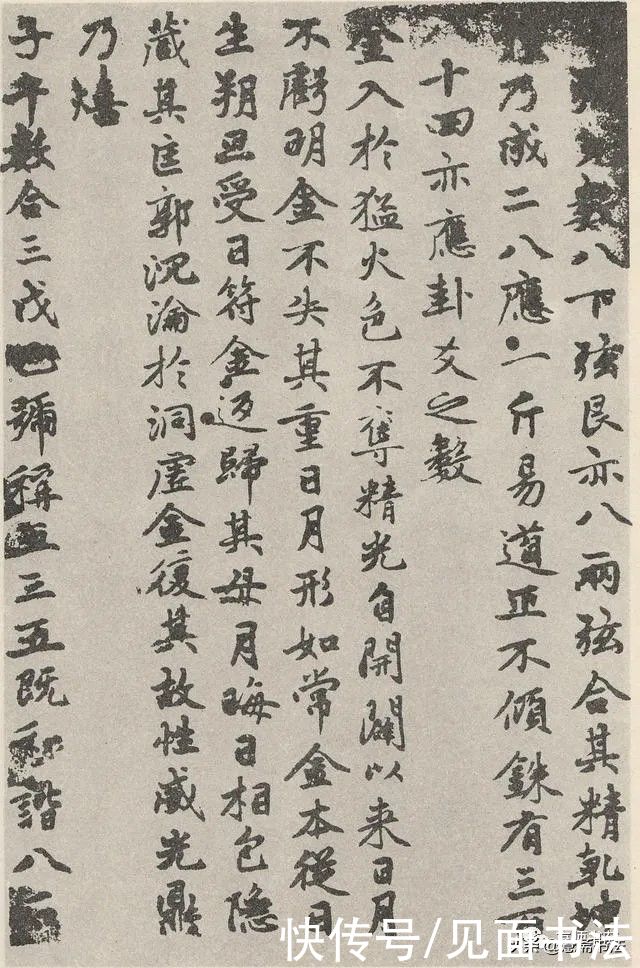 數八下弦艮亦八兩弦合其精乾坤
乃成二八應一斤易道正不傾銖有三百
十四亦應卦爻之數
金入於猛火色不奪精光自開闢以来日月
不虧明金不失其重日月形如常金本從日
生朔旦受日符金返歸其母月晦日相包隱
藏其匡郭沉淪於洞虛金復其故性威光鼎
乃熺
子午數合三戊己號稱五三五既和諧八石
快传号/见面书法